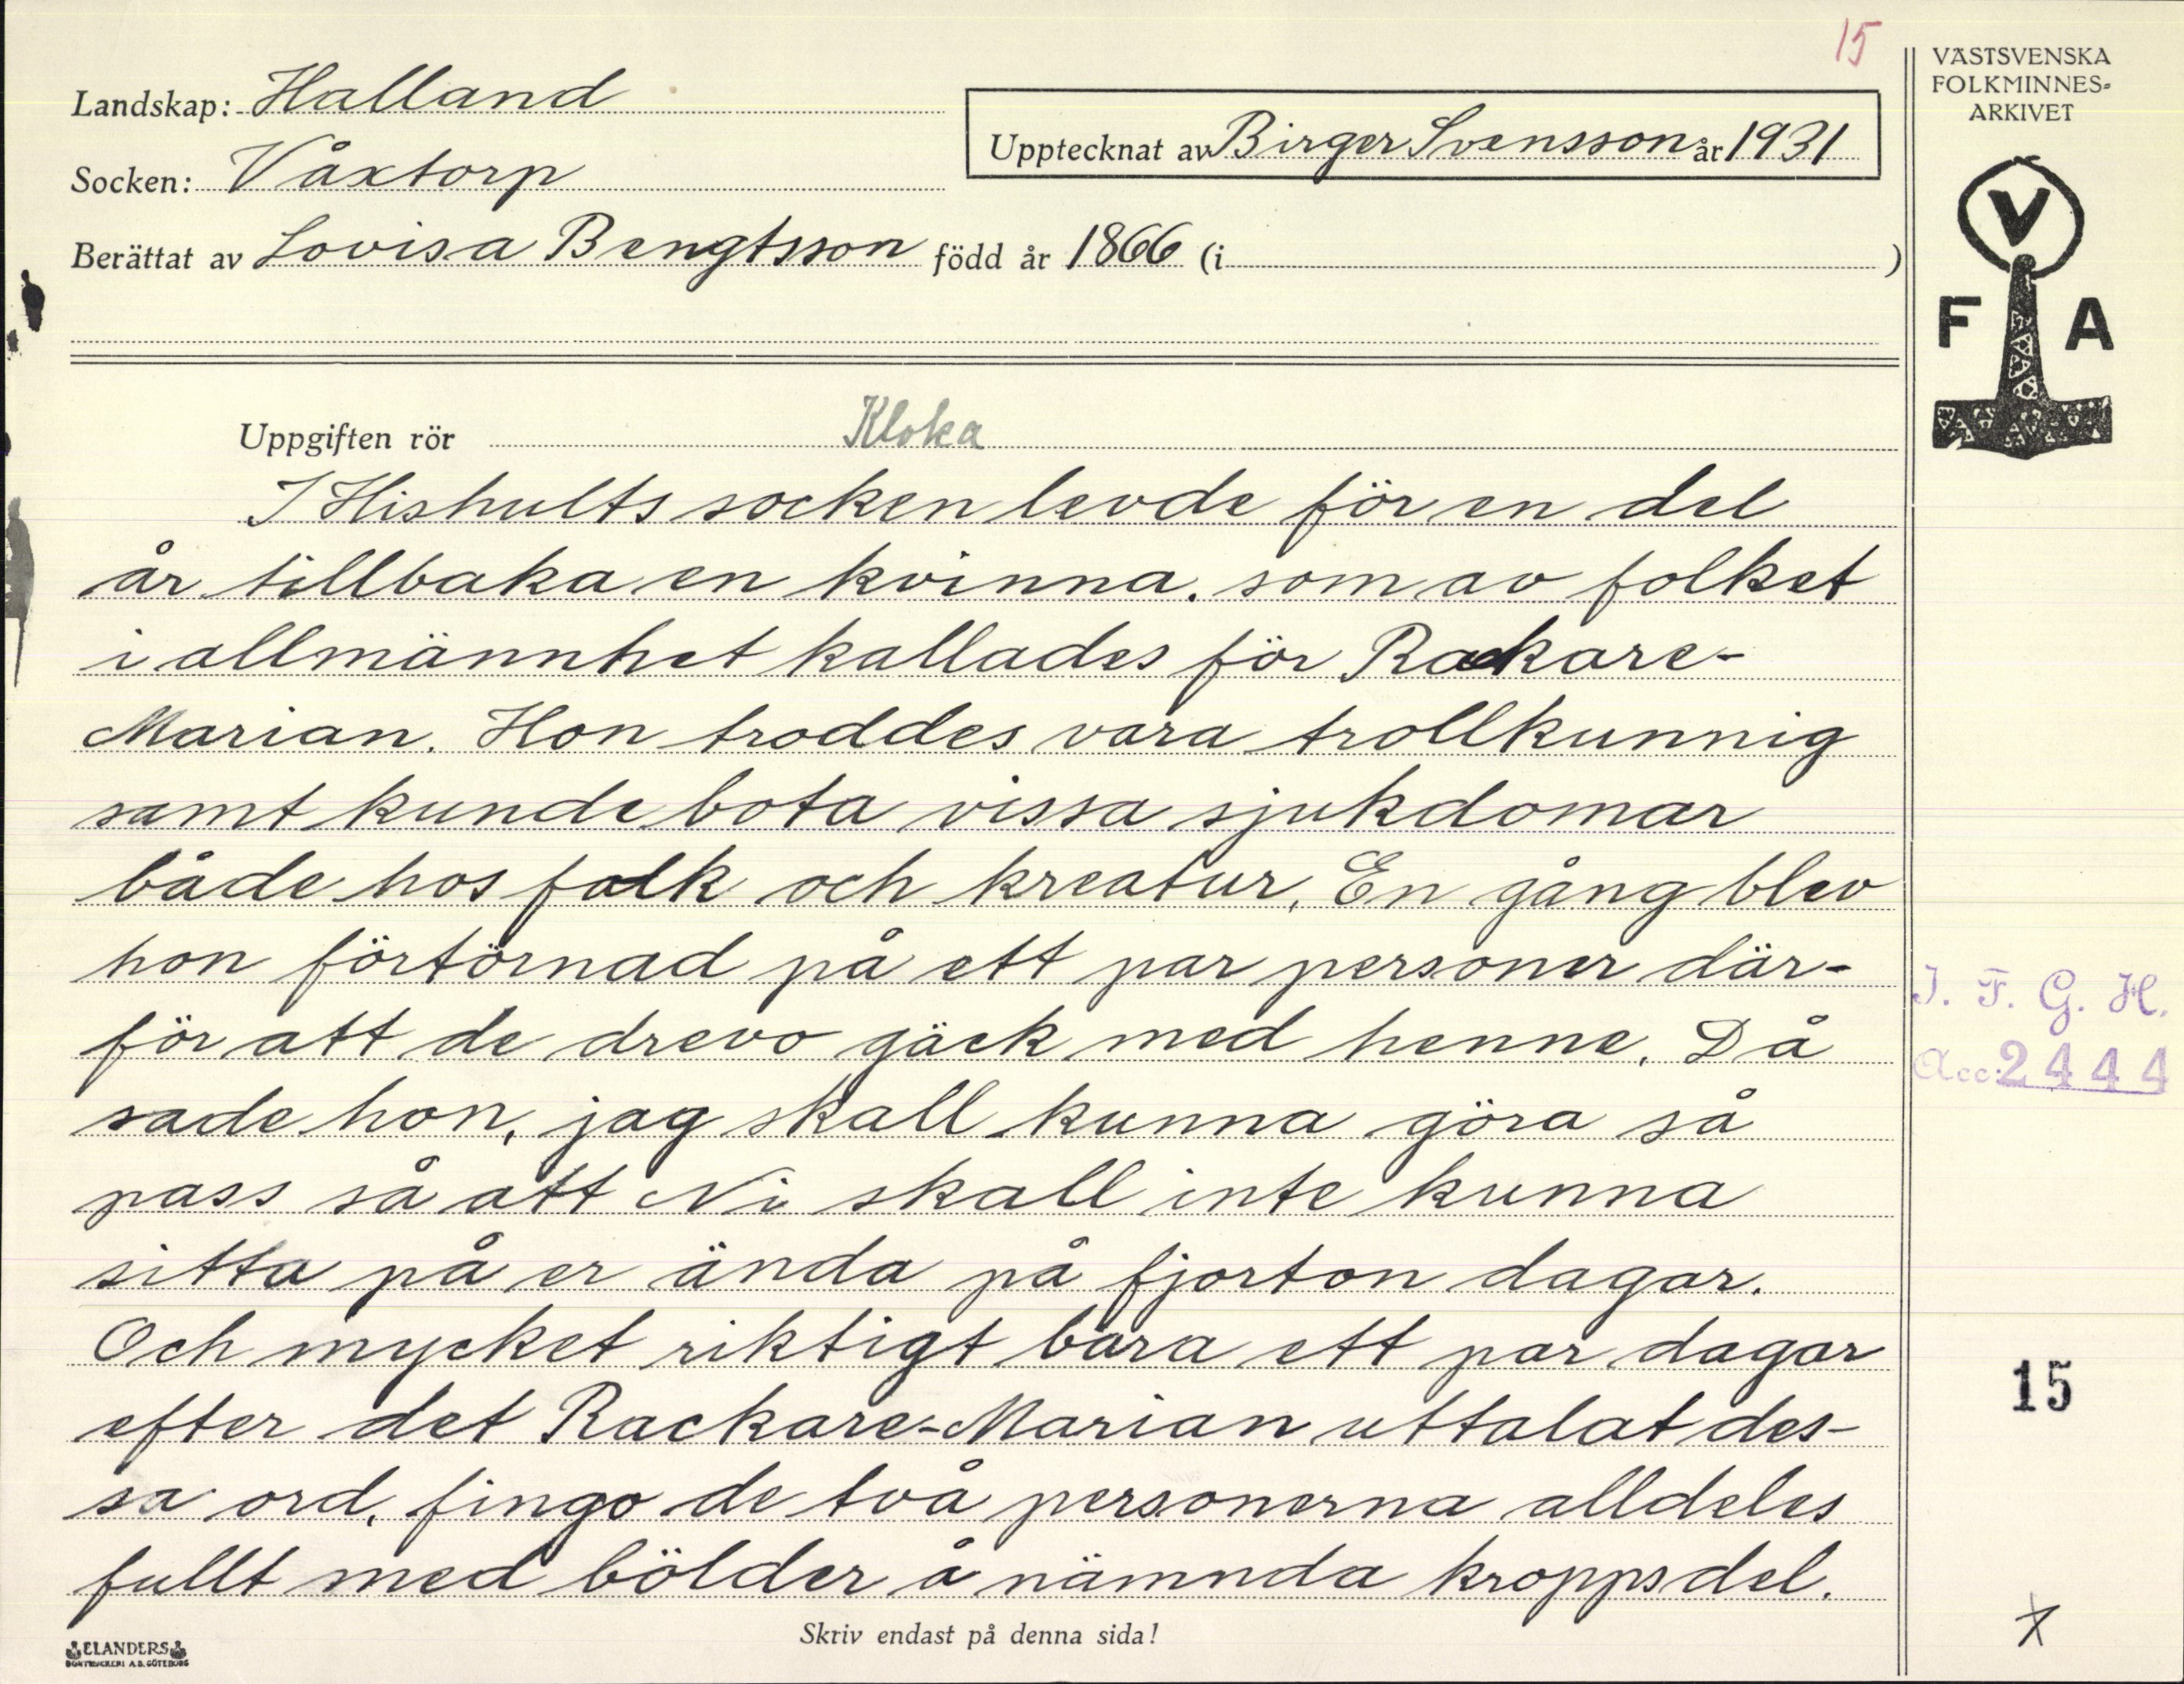 15
Landskap: Halland
Socken: Våxtorp
Upptecknat av Birger Svensson år 1931
Berättat av Lovisa Bengtsson född år 1866 (i )
VÄSTSVENSKA
FOLKMINNES-
ARKIVET
V
F A
Uppgiften rör Kloka
I Hishults socken levde för en del
år tillbaka en kvinna. som av folket
i allmännhet kallades för Rackare-
Marian. Hon troddes vara trollkunnig
samt kunde bota vissa sjukdomar
både hos folk och kreatur. En gång blev
hon förtörnad på ett par personer där-
för att de drevo gäck med henne. Då
sade hon, jag skall kunna göra så
pass så att Ni skall inte kunna
sitta på er ända på fjorton dagar.
Och mycket riktigt bara ett par dagar
efter det Rackare-Marian uttalat des-
sa ord, fingo de två personerna alldeles
fullt med bölder å nämnda kroppsdel.
I. F. G. H.
Acc: 2444
15
x
Skriv endast på denna sida!
ELANDERS
BOKTRYCKERI A.B. GÖTEBORG